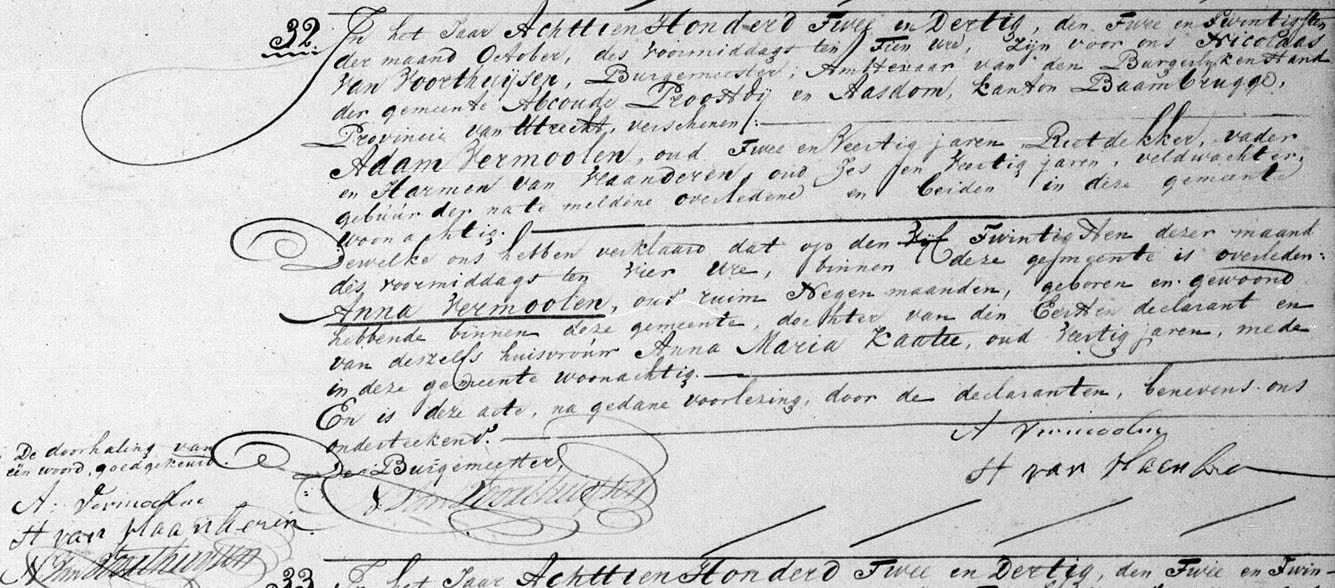 32. In het Jaar Achttien Honderd Twee en Dertig, den Twee en Twintigsten
der maand October, des voormiddags ten Tien ure, Zijn voor ons Nicolaas
Van Voorthuijsen, Burgemeester, Ambtenaar van den Burgerlyken Stand
der gemeente Abcoude Proostdij en Aasdom, kanton Baambrugge,
Provincie van Utrecht, verschenen /:
Adam Vermoolen, oud Twee en Veertig jaren Rietdekker, vader
en Harmen van Vlaanderen, oud Zes en Veertig jaren, veldwachter,
gebuur der na te meldene overledene en beiden in deze gemeente
woonachtig.
Dewelke ons hebben verklaard dat op den Vyf Twintigsten dezer maand
des voormiddags ten Vier ure, binnen deze gemeente is overleden:
Anna Vermoolen, oud ruim Negen maanden, geboren en gewoond
hebbende binnen deze gemeente, dochter van den Eersten declarant en
van deszelfs huisvrouw Anna Maria Kaatee, oud Veertig jaren, mede
in deze gemeente woonachtig.
En is deze acte, na gedane voorlezing, door de declaranten, benevens ons
onderteekend.
A Vermoolen
De Burgemeester,
H van Vlaandren
N Van Voorthuysen
De doorhaling van
één woord, goedgekeurd.
A. Vermoolen
H van Vlaanderen
N Van Voorthuysen
33 In het Jaar Achttien Honderd Twee en Dertig, den Twee en Twin-